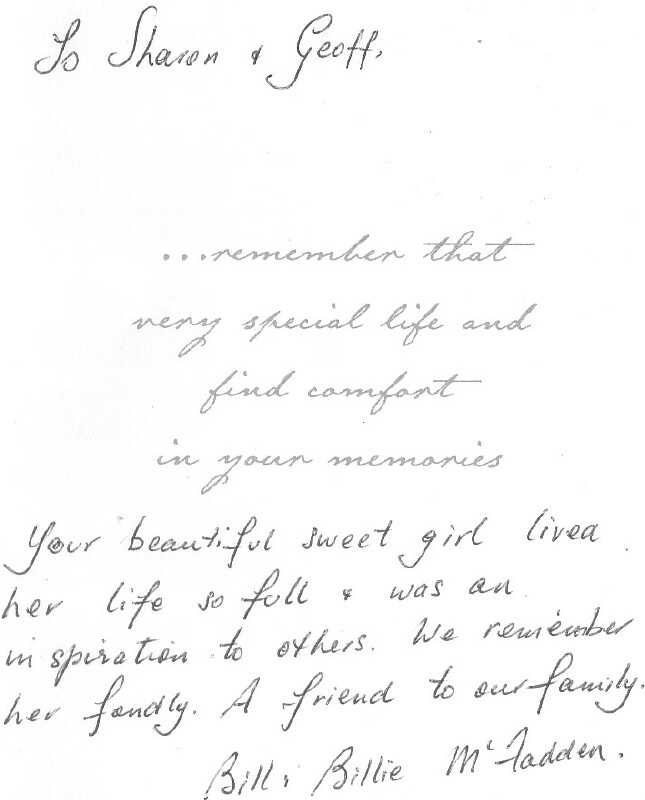 To Sharon & Geoff,
...remember that
very special life and
find comfort
in your memories
Your beautiful sweet girl lived
her life so full & was an
inspiration to others. We remember
her fondly. A friend to our family.
Bill & Billie McFadden.